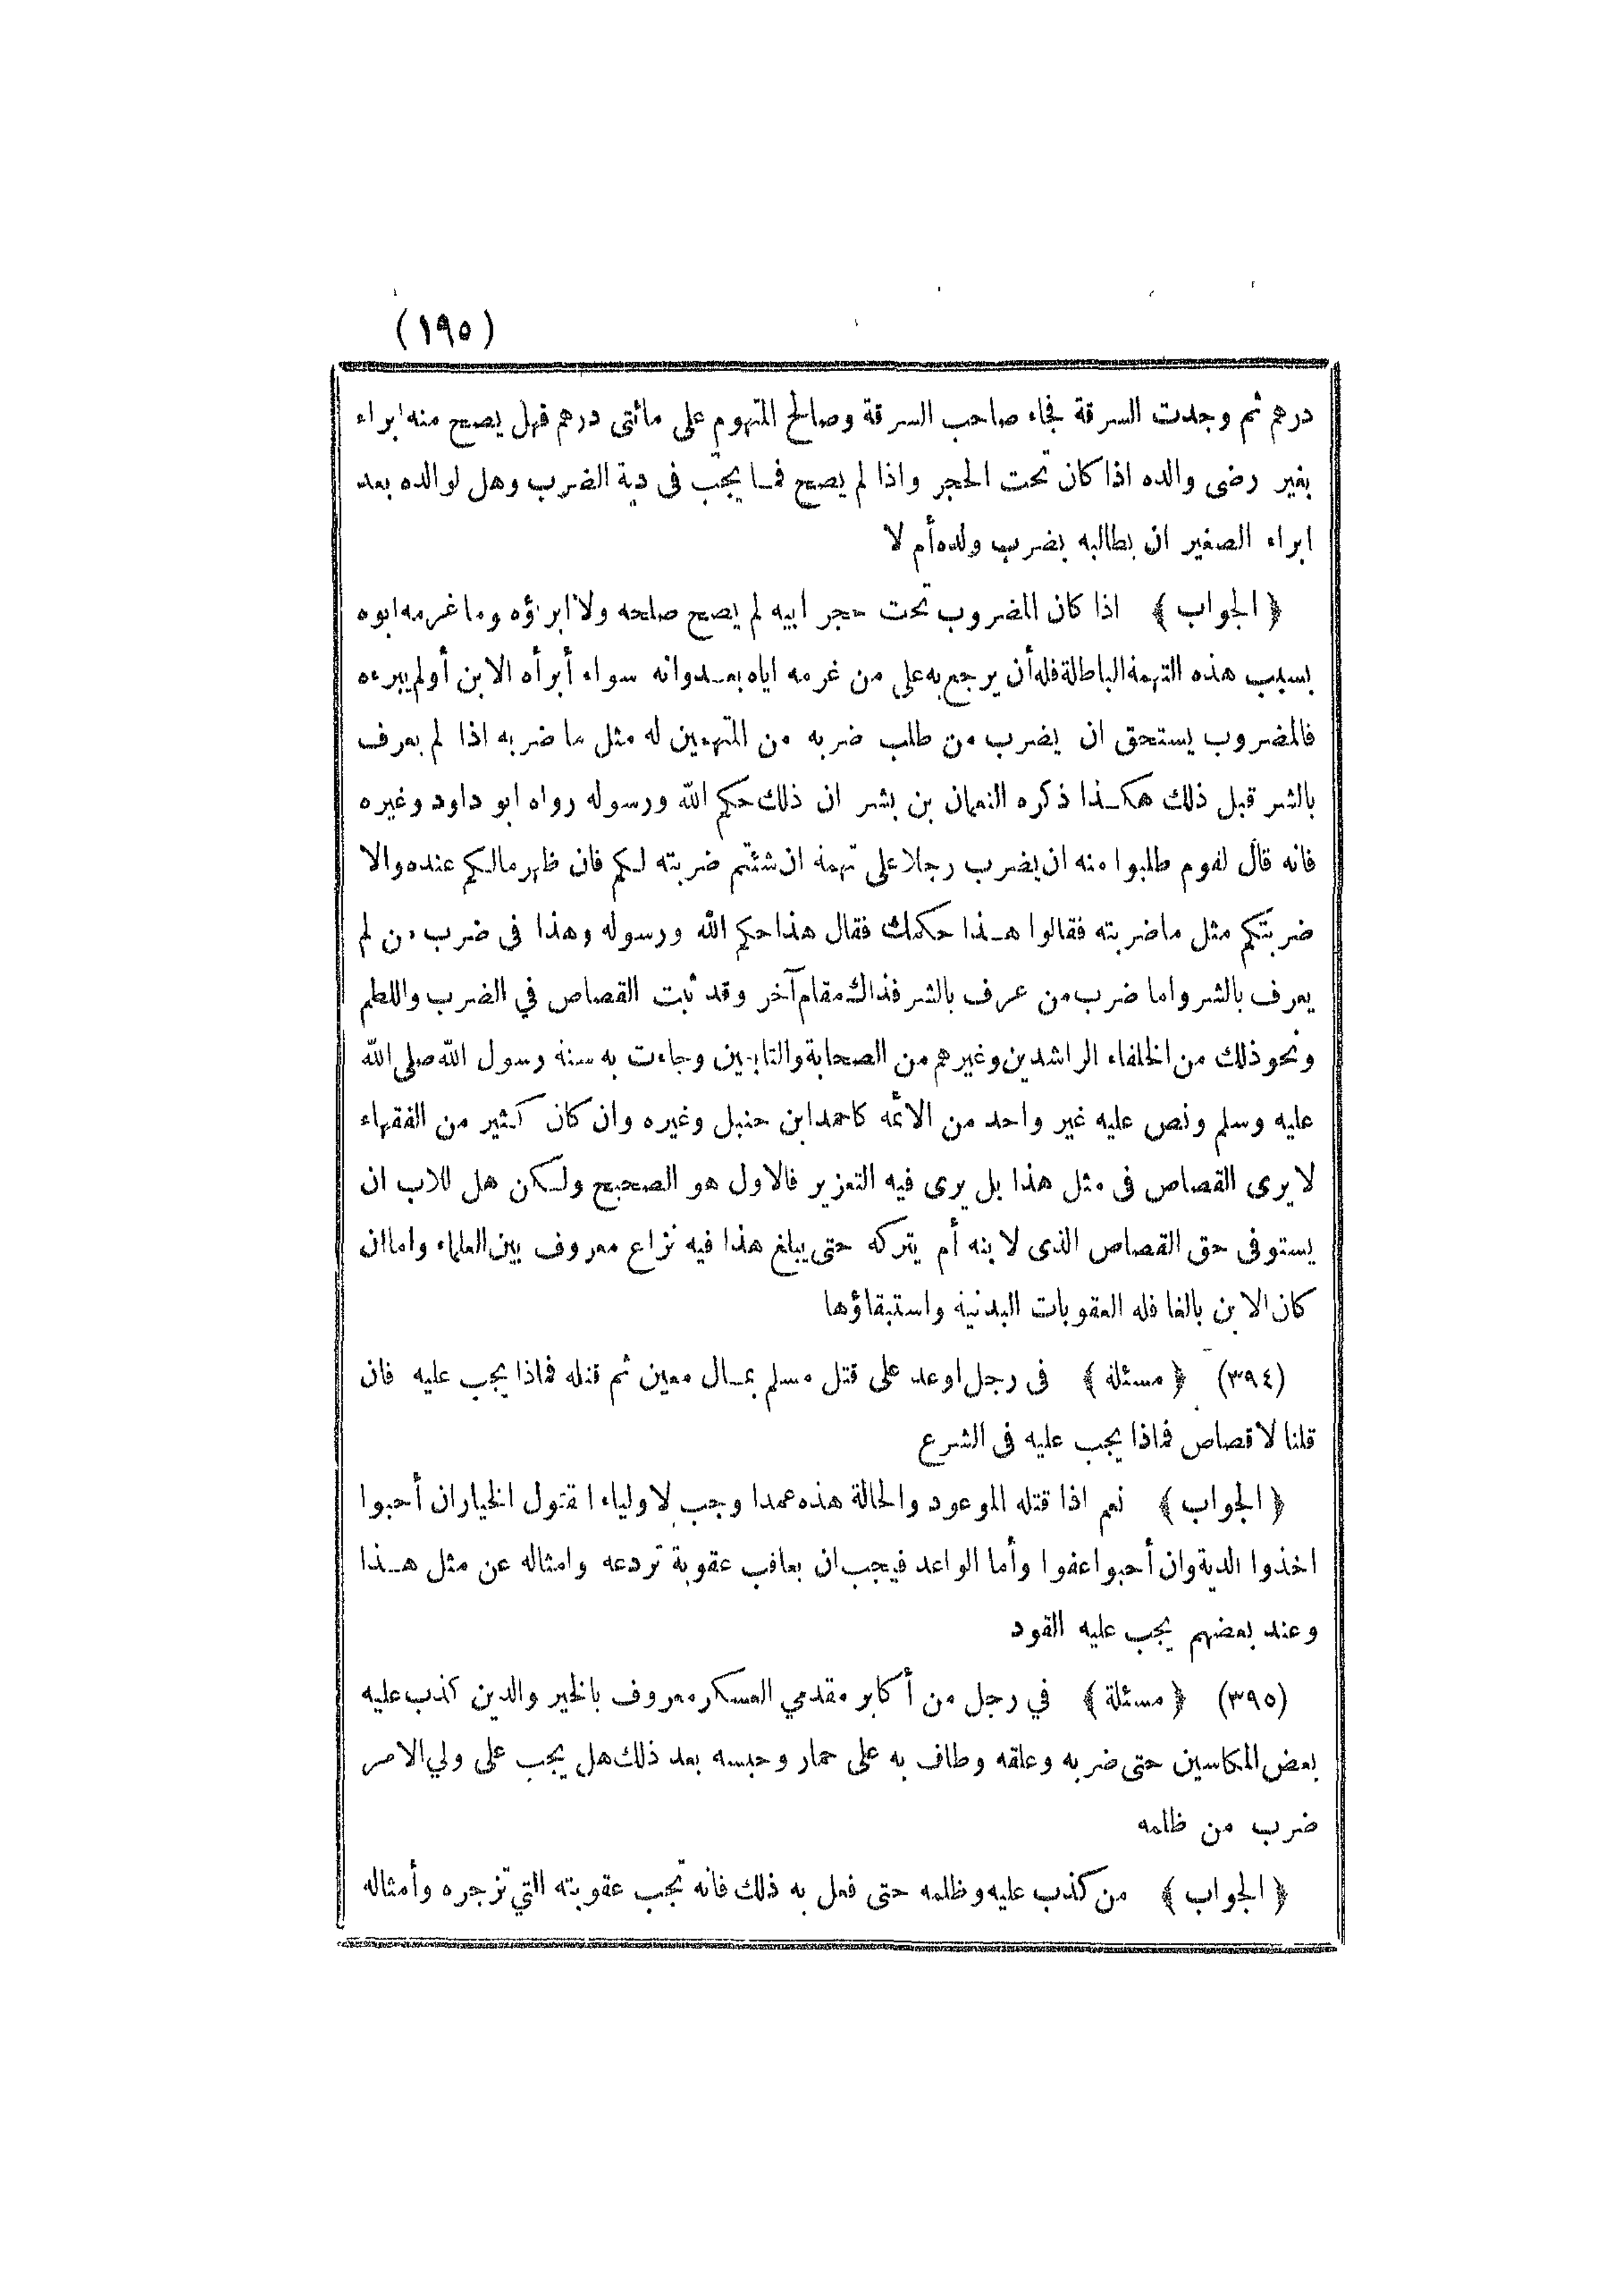 (١٩٥)
درهم ثم وجدت السرقة فجاء صاحب السرقة وصالح المتهوم على مائتى درهم فهل يصح منه ابراء
بغير رضى والده اذا كان تحت الحجر واذا لم يصح فما يجب فى دية الضرب وهل لوالده بعد
ابراء الصغير ان يطالبه بضرب ولده أم لا
﴿ الجواب ﴾ اذا كان المضروب تحت حجر أبيه لم يصح صلحه ولا ابرؤه وما غرمه ابوه
بسبب هذه التهمة الباطلة فله أن يرجع به على من غرمه اياه بعدوانه سواء أبرأه الابن أولم يبرءه
فالمضروب يستحق ان يضرب من طلب ضربه من المتهمين له مثل ما ضربه اذا لم يعرف
بالشر قبل ذلك هكذا ذكره النعمان بن بشر ان ذلك حكم الله ورسوله رواه ابو داود وغيره
فانه قال لقوم طلبوا منه ان يضرب رجلا على تهمة ان شئتم ضربته لكم فان ظهر مالكم عنده والا
ضربتكم مثل ما ضربته فقالوا هذا حكمك فقال هذا حكم الله ورسوله وهذا فى ضرب من لم
يعرف بالشر واما ضرب من عرف بالشر فذاك مقام آخر وقد ثبت القصاص في الضرب واللطم
ونحو ذلك من الخلفاء الراشدين وغيرهم من الصحابة والتابعين وجاءت به سنة رسول الله صلى الله
عليه وسلم ونص عليه غير واحد من الائمه كاحمد ابن حنبل وغيره وان كان كثير من الفقهاء
لا يرى القصاص فى مثل هذا بل يرى فيه التعزير فالاول هو الصحيح ولكن هل للاب ان
يستوفى حق القصاص الذى لابنه أم يتركه حتى يبلغ هذا فيه نزاع معروف بين العلماء واما ان
كان الابن بالغا فله العقوبات البدنية واستبقاؤها
(٣٩٤) ﴿ مسئلة ﴾ فى رجل اوعد على قتل مسلم بمال معين ثم قتله فماذا يجب عليه فان
قلنا لا قصاص فماذا يجب عليه فى الشرع
﴿ الجواب ﴾ نعم اذا قتله الموعود والحالة هذه عمدا وجب لاولياء المقتول الخيار ان أحبوا
اخذوا الدية وان أحبوا عفوا وأما الواعد فيجب ان يعاقب عقوبة تردعه وامثاله عن مثل هذا
وعند بعضهم يجب عليه القود
(٣٩٥) ﴿ مسئلة ﴾ في رجل من أكابر مقدمي العسكر معروف بالخير والدين كذب عليه
بعض المكاسين حتى ضربه وعلقه وطاف به على حمار وحبسه بعد ذلك هل يجب على ولي الامر
ضرب من ظلمه
﴿ الجواب ﴾ من كذب عليه وظلمه حتى فعل به ذلك فانه تجب عقوبته التي تزجره وأمثاله